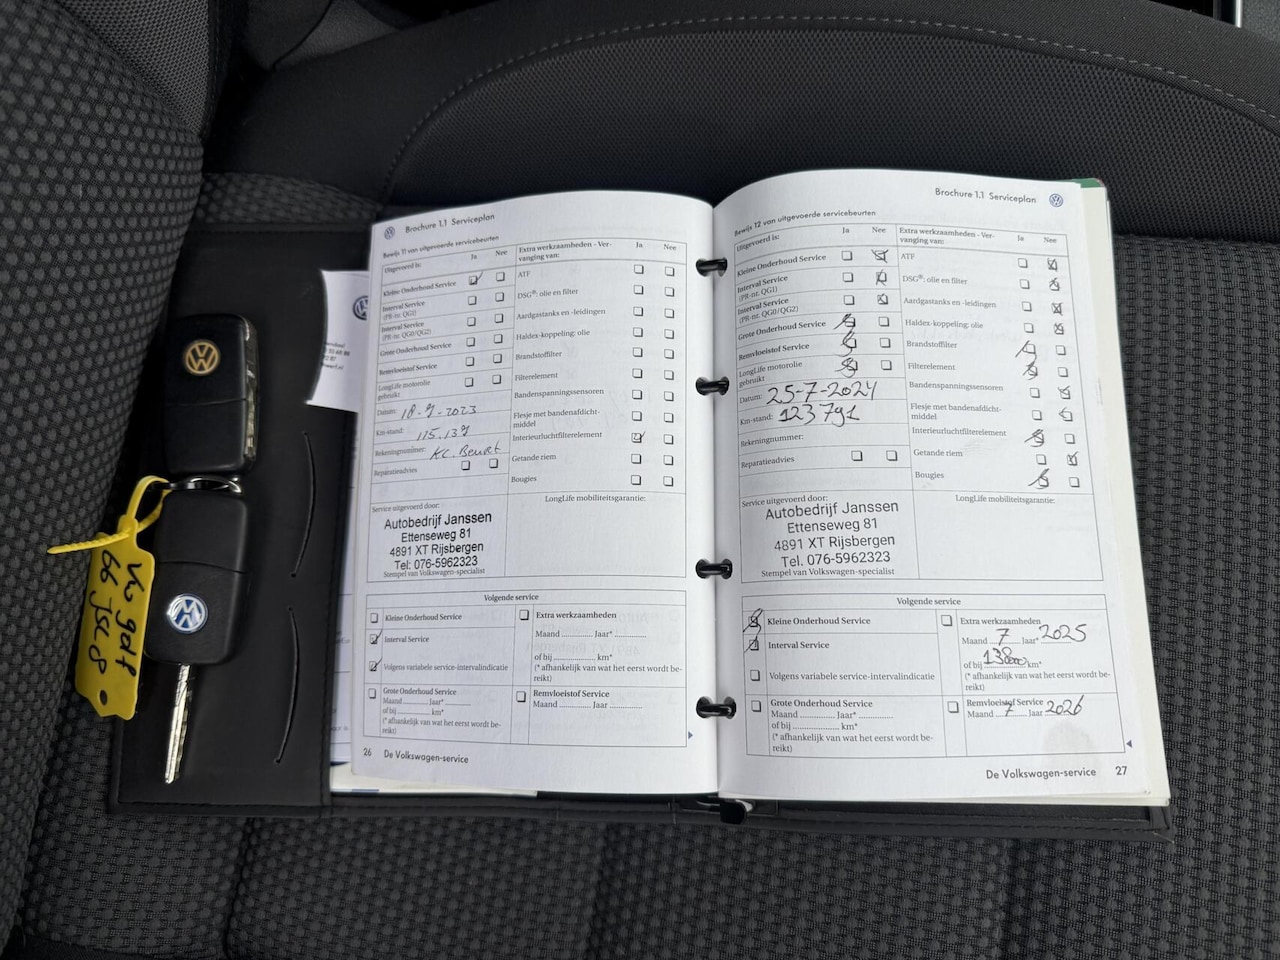 Brochure 1.1 Serviceplan
Bewijs 11 van uitgevoerde servicebeurten
Uitgevoerd is:
Ja
Nee
Kleine Onderhoud Service
Interval Service
(PR-nr. QG1)
Interval Service
(PR-nr. QG0/QG2)
Grote Onderhoud Service
Remvloeistof Service
LongLife motorolie
gebruikt
Datum: 18-7-2023
Km-stand: 115.137
Rekeningnummer: KL. Beurt
Reparatieadvies
Extra werkzaamheden - Ver-
vanging van:
Ja
Nee
ATF
DSG®: olie en filter
Aardgastanks en -leidingen
Haldex-koppeling: olie
Brandstoffilter
Filterelement
Bandenspanningssensoren
Flesje met bandenafdicht-
middel
Interieurluchtfilterelement
Getande riem
Bougies
Service uitgevoerd door:
Autobedrijf Janssen
Ettenseweg 81
4891 XT Rijsbergen
Tel: 076-5962323
Stempel van Volkswagen-specialist
LongLife mobiliteitsgarantie:
Volgende service
Kleine Onderhoud Service
Interval Service
Volgens variabele service-intervalindicatie
Grote Onderhoud Service
Maand ............ Jaar* ............
of bij ............ km*
(* afhankelijk van wat het eerst wordt be-
reikt)
Extra werkzaamheden
Maand ............ Jaar* ............
of bij ............ km*
(* afhankelijk van wat het eerst wordt be-
reikt)
Remvloeistof Service
Maand ............ Jaar ............
26 De Volkswagen-service
Brochure 1.1 Serviceplan
Bewijs 12 van uitgevoerde servicebeurten
Uitgevoerd is:
Ja
Nee
Kleine Onderhoud Service
Interval Service
(PR-nr. QG1)
Interval Service
(PR-nr. QG0/QG2)
Grote Onderhoud Service
Remvloeistof Service
LongLife motorolie
gebruikt
Datum: 25-7-2024
Km-stand: 123791
Rekeningnummer:
Reparatieadvies
Extra werkzaamheden - Ver-
vanging van:
Ja
Nee
ATF
DSG®: olie en filter
Aardgastanks en -leidingen
Haldex-koppeling: olie
Brandstoffilter
Filterelement
Bandenspanningssensoren
Flesje met bandenafdicht-
middel
Interieurluchtfilterelement
Getande riem
Bougies
Service uitgevoerd door:
Autobedrijf Janssen
Ettenseweg 81
4891 XT Rijsbergen
Tel. 076-5962323
Stempel van Volkswagen-specialist
LongLife mobiliteitsgarantie:
Volgende service
Kleine Onderhoud Service
Interval Service
Volgens variabele service-intervalindicatie
Grote Onderhoud Service
Maand ............ Jaar* ............
of bij ............ km*
(* afhankelijk van wat het eerst wordt be-
reikt)
Extra werkzaamheden
Maand 7 Jaar* 2025
of bij 138000 km*
(* afhankelijk van wat het eerst wordt be-
reikt)
Remvloeistof Service
Maand 7 Jaar 2026
De Volkswagen-service 27
golf